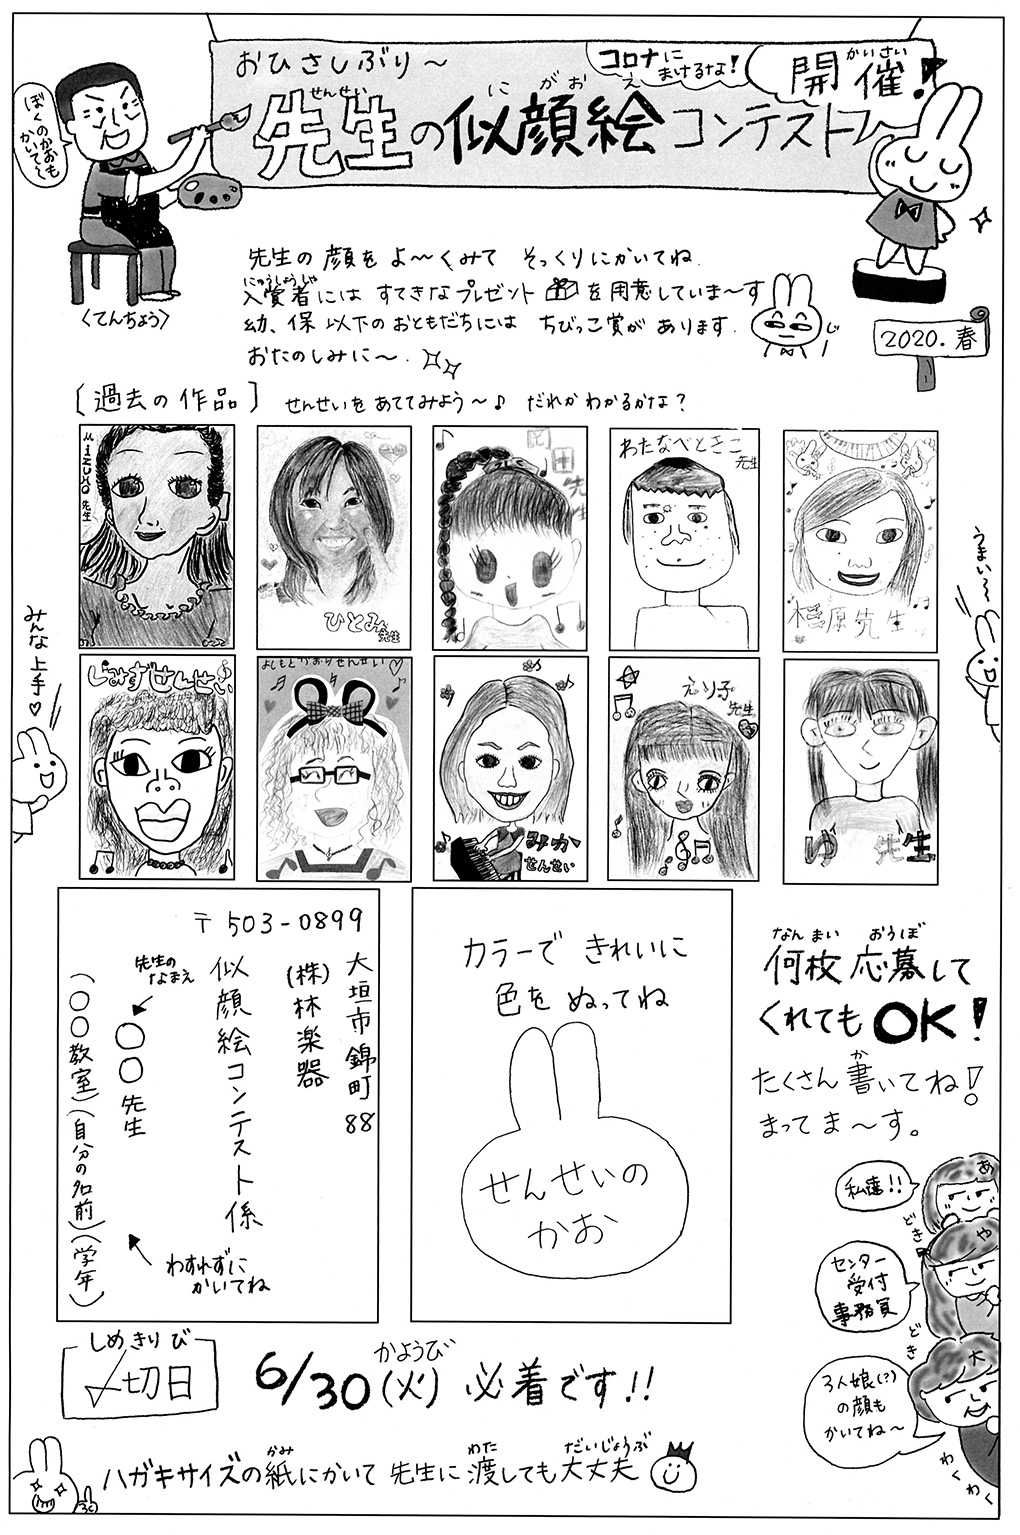 おひさしぶり～
コロナに
まけるな!
かいさい
開催!
せんせい にがおえ
先生の似顔絵コンテスト
ぼくのかおも
かいて～
〈てんちょう〉
先生の顔をよ～くみて そっくりにかいてね
にゅうしょうしゃ
入賞者には すてきなプレゼント を用意していま～す
幼、保以下のおともだちには ちびっこ賞があります.
おたのしみに～.
じー
2020.春
[過去の作品] せんせいをあててみよう～♪ だれかわかるかな?
MIZUHO先生
ひとみ先生
先生
わたなべときこ
先生
原先生
しみずせんせい
よしもとかおりせんせい♡
みか
せんせい
えり子
先生
ゆ 先生
みんな上手♡
うまい～
〒503-0899
大垣市錦町88
(株)林楽器
似顔絵コンテスト係
先生の
なまえ
〇〇先生
(〇〇教室)(自分の名前)(学年)
わすれずに
かいてね
カラーで きれいに
色を ぬってね
せんせいの
かお
なんまい おうぼ
何枚応募して
くれてもOK!
か
たくさん書いてね!
まってま～す。
私達!!
どき
センター
受付
事務員
どき
3人娘(?)
の顔も
かいてね～
わくわく
あ
や
大
しめきりび
〆切日
かようび
6/30(火) 必着です!!
かみ わた だいじょうぶ
ハガキサイズの紙にかいて 先生に渡しても大丈夫